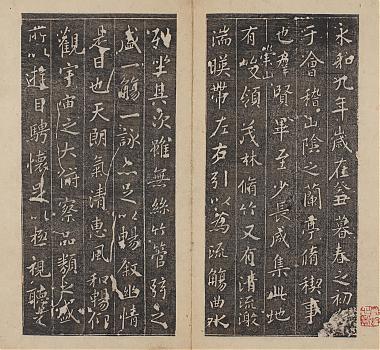 永和九年歲在癸丑暮春之初會
于會稽山陰之蘭亭脩稧事
也羣賢畢至少長咸集此地
有峻領茂林脩竹又有清流激
崇山
湍暎帶左右引以為流觴曲水
列坐其次雖無絲竹管弦之
盛一觴一詠亦足以暢敘幽情
是日也天朗氣清惠風和暢仰
觀宇宙之大俯察品類之盛
所以遊目騁懷足以極視聽之